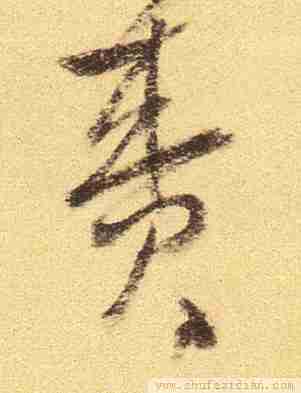 責
www.shufazidian.com